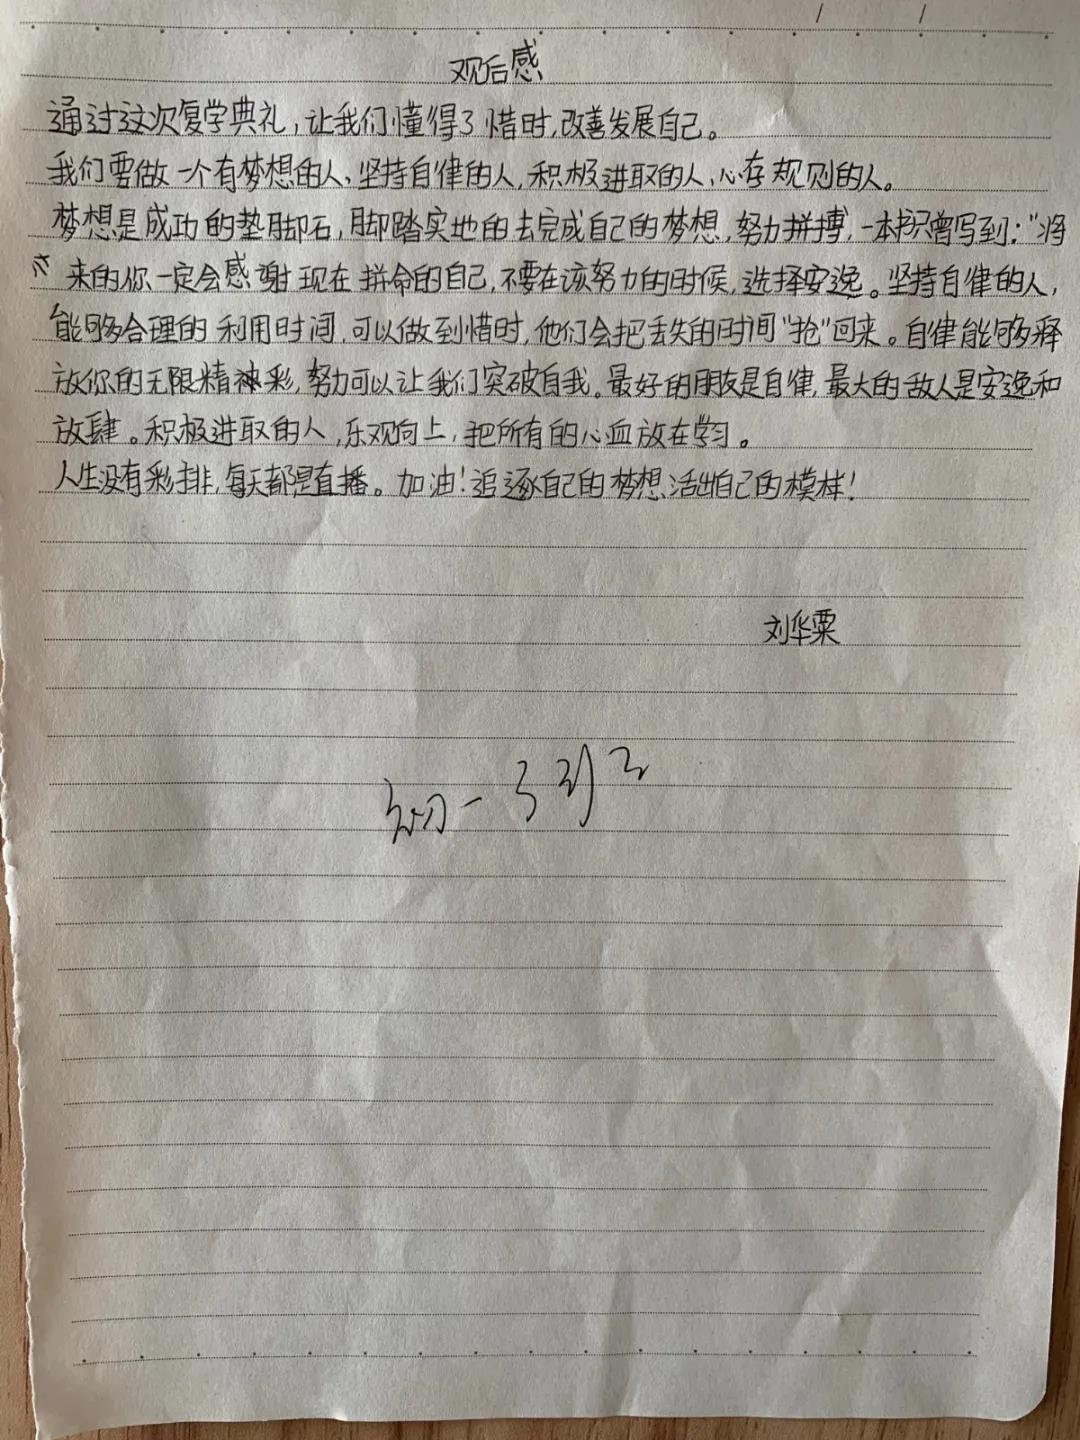 观后感
通过这次复学典礼,让我们懂得了惜时,改善发展自己。
我们要做一个有梦想的人、坚持自律的人,积极进取的人、心存规则的人。
梦想是成功的垫脚石,脚踏实地的去完成自己的梦想,努力拼搏,一本书曾写到:"将
来的你一定会感谢现在拼命的自己,不要在该努力的时候,选择安逸。坚持自律的人,
能够合理的利用时间,可以做到惜时,他们会把丢失的时间"抢"回来。自律能够释
放你的无限精神彩,努力可以让我们突破自我。最好的朋友是自律,最大的敌人是安逸和
放肆。积极进取的人,乐观向上,把所有的心血放在学习。
人生没有彩排,每天都是直播。加油!追逐自己的梦想活出自己的模样!
刘华粟
初一